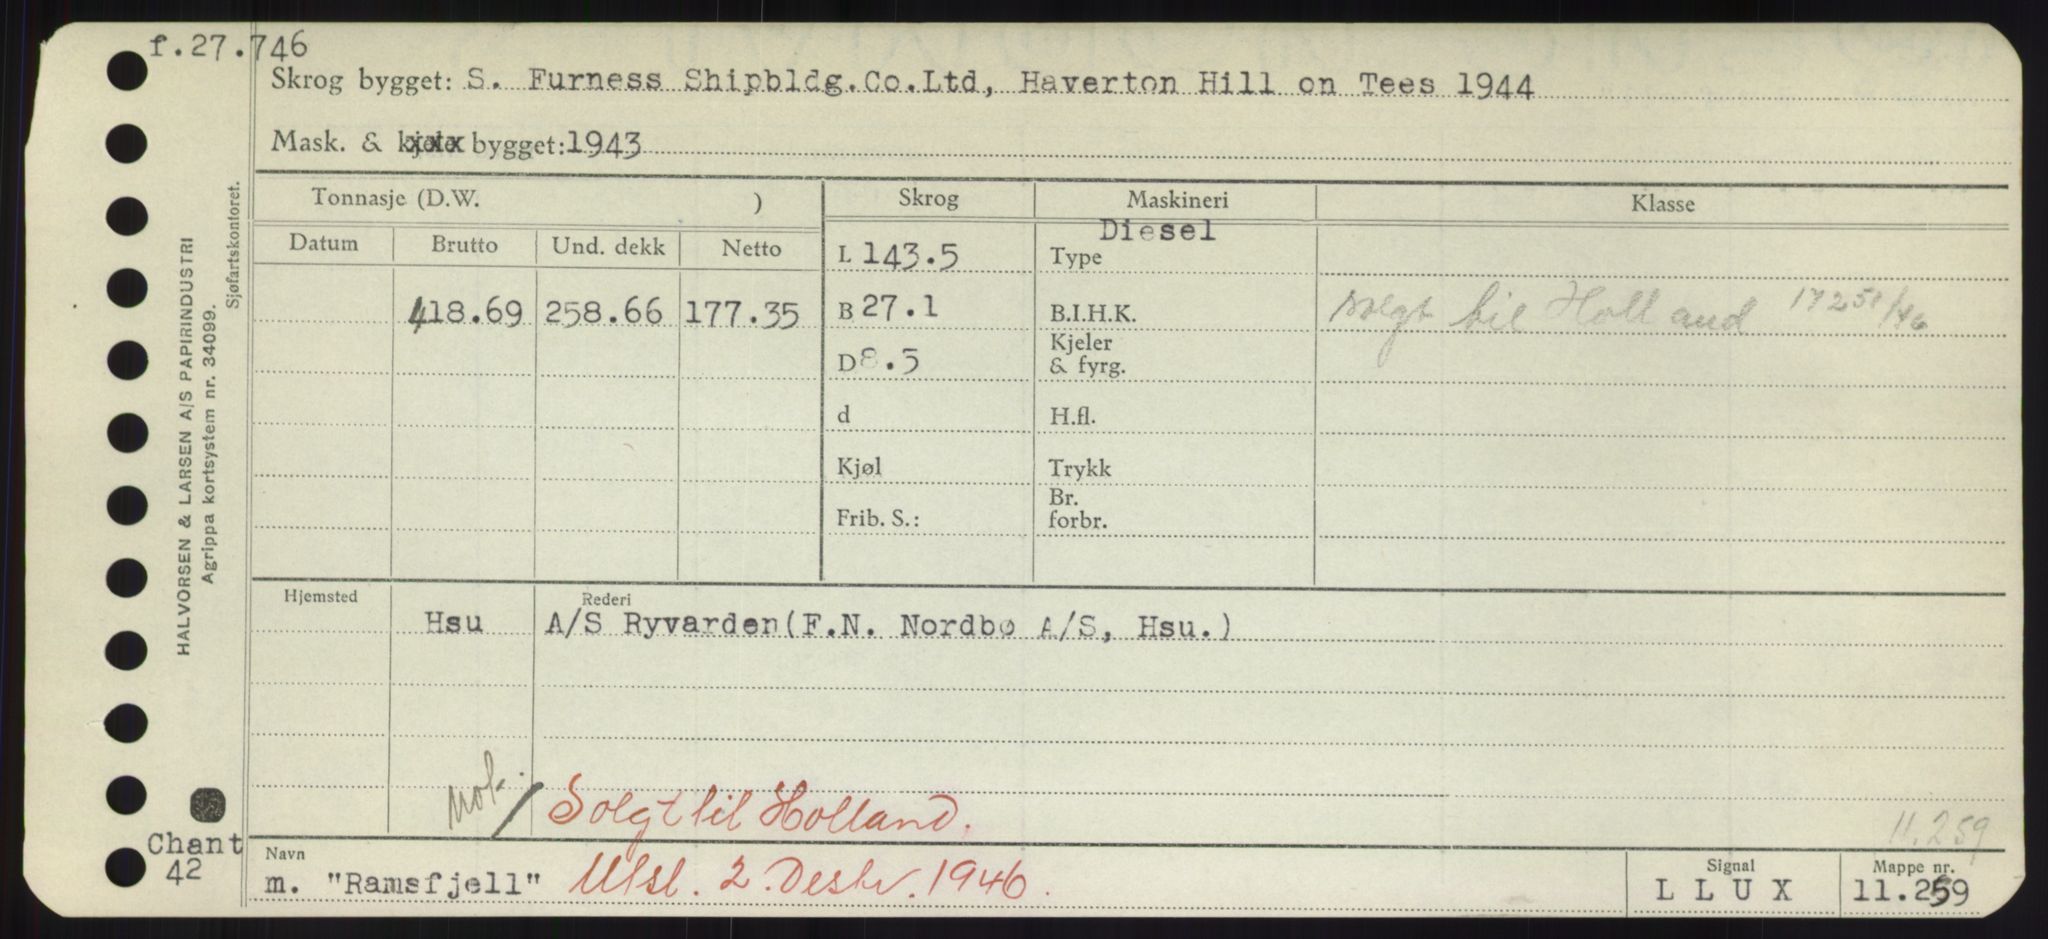 f.27.746
Skrog bygget: S. Furness Shipbldg.Co.Ltd, Haverton Hill on Tees 1944
Mask. & kjele bygget: 1943
Tonnasje (D.W. ) Skrog Maskineri Klasse
Datum Brutto Und. dekk Netto L 143.5 Diesel
Type
418.69 258.66 177.35 B 27.1 B.I.H.K. solgt til Holland
D 8.5 Kjeler
& fyrg.
d H.fl.
Kjøl Trykk
Frib. S.: Br.
forbr.
Hjemsted Rederi
Hsu A/S Ryvarden(F.N. Nordbø A/S, Hsu.)
Solgt til Holland.
11.259
Navn Signal Mappe nr.
m. "Ramsfjell" Utsl. 2. Desbr. 1946. L L U X 11.259
Chant
42
HALVORSEN & LARSEN A/S PAPIRINDUSTRI
Agrippa kortsystem nr. 34099.
Sjøfartskontoret.